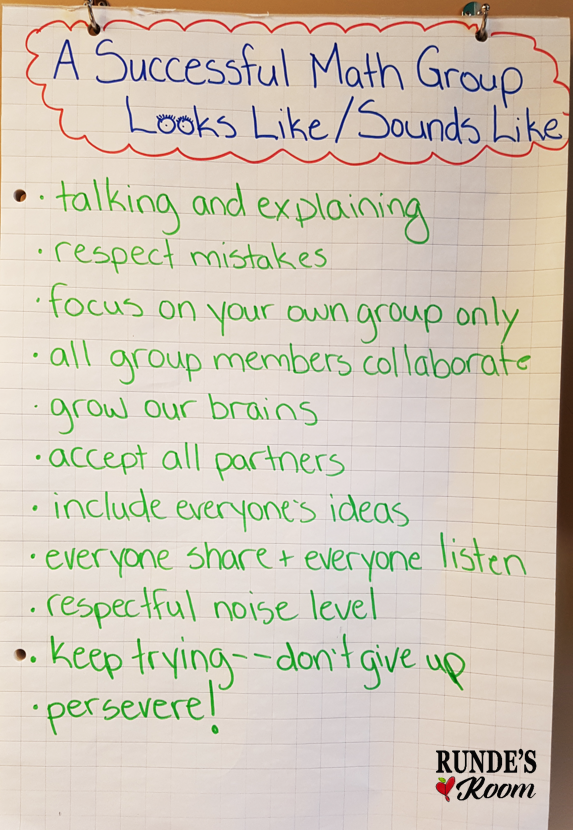 A Successful Math Group
Looks Like/Sounds Like
· talking and explaining
· respect mistakes
· focus on your own group only
· all group members collaborate
· grow our brains
· accept all partners
· include everyone's ideas
· everyone share + everyone listen
· respectful noise level
· keep trying--don't give up
· persevere!
RUNDE'S
Room